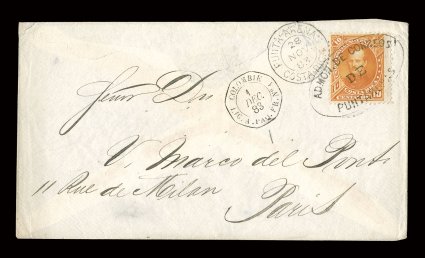 PUNTARENAS
28
NOV
83
COSTA RICA
ADMON. DE CORREOS
DE
PUNTARENAS
COLOMBIE
1
DEC
83
PAQ. FR.
V. Marco del Pont
11 Rue de Milan
Paris